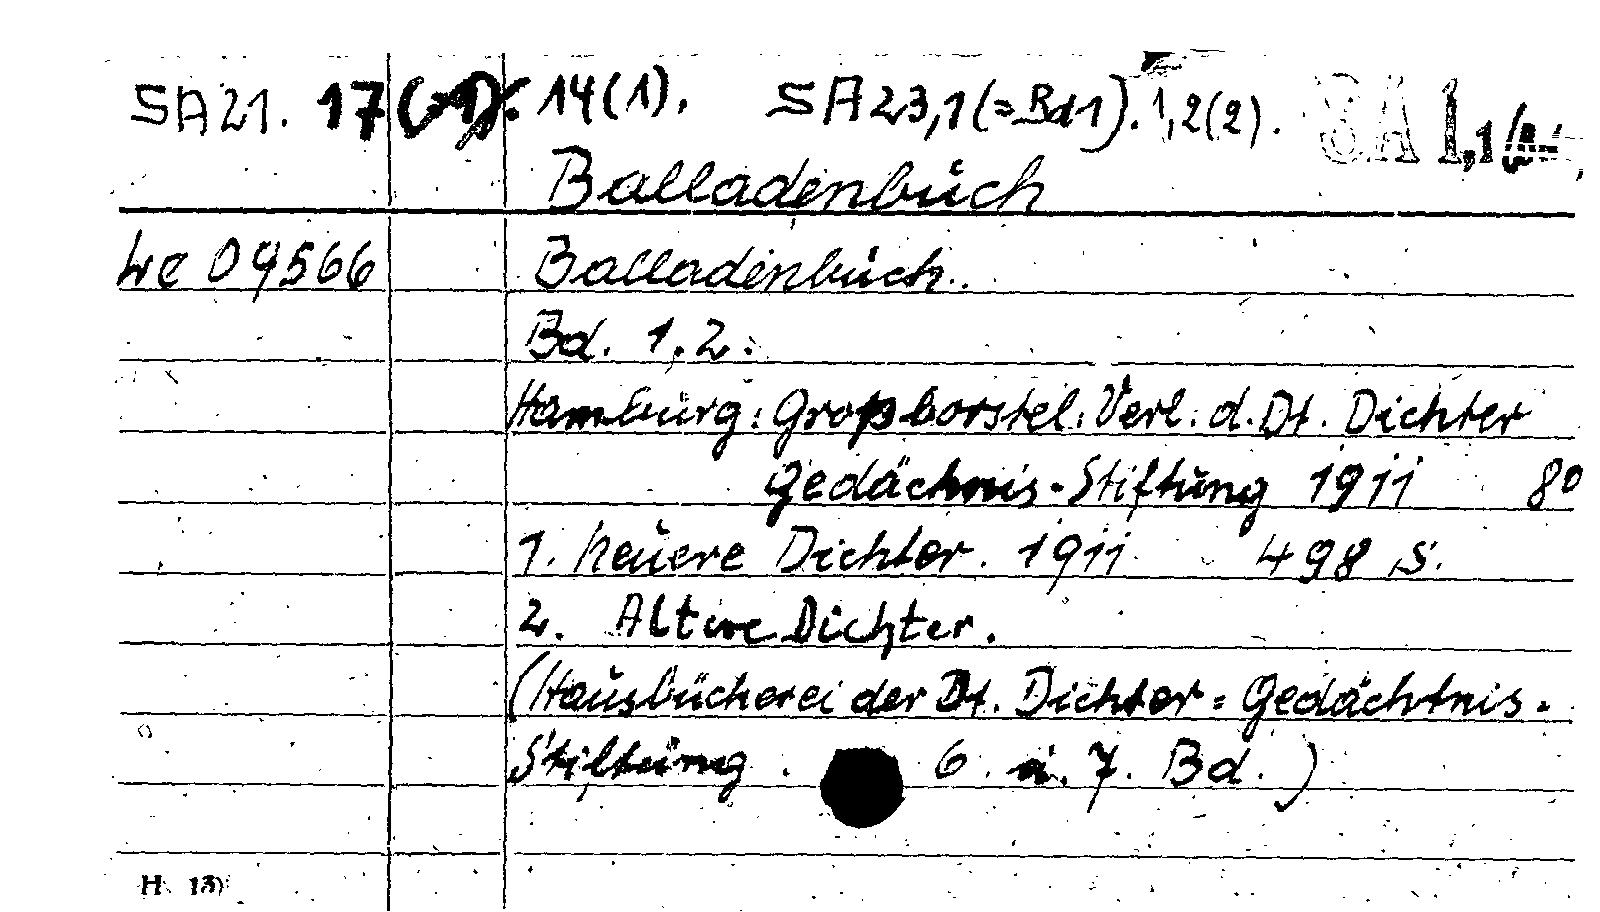 SA21. 17 14(1). SA23,1(=Bd1). 1,2(2). SA 1,1
Balladenbuch
We 09566 Balladenbuch.
Bd. 1.2.
Hamburg: Großborstel: Verl. d. Dt. Dichter
Gedächnis-Stiftung 1911 8º
1. Neuere Dichter. 1911 498 S.
2. Altere Dichter.
(Hausbücherei der Dt. Dichter=Gedächtnis-
Stiftung. 6. u. 7. Bd.)